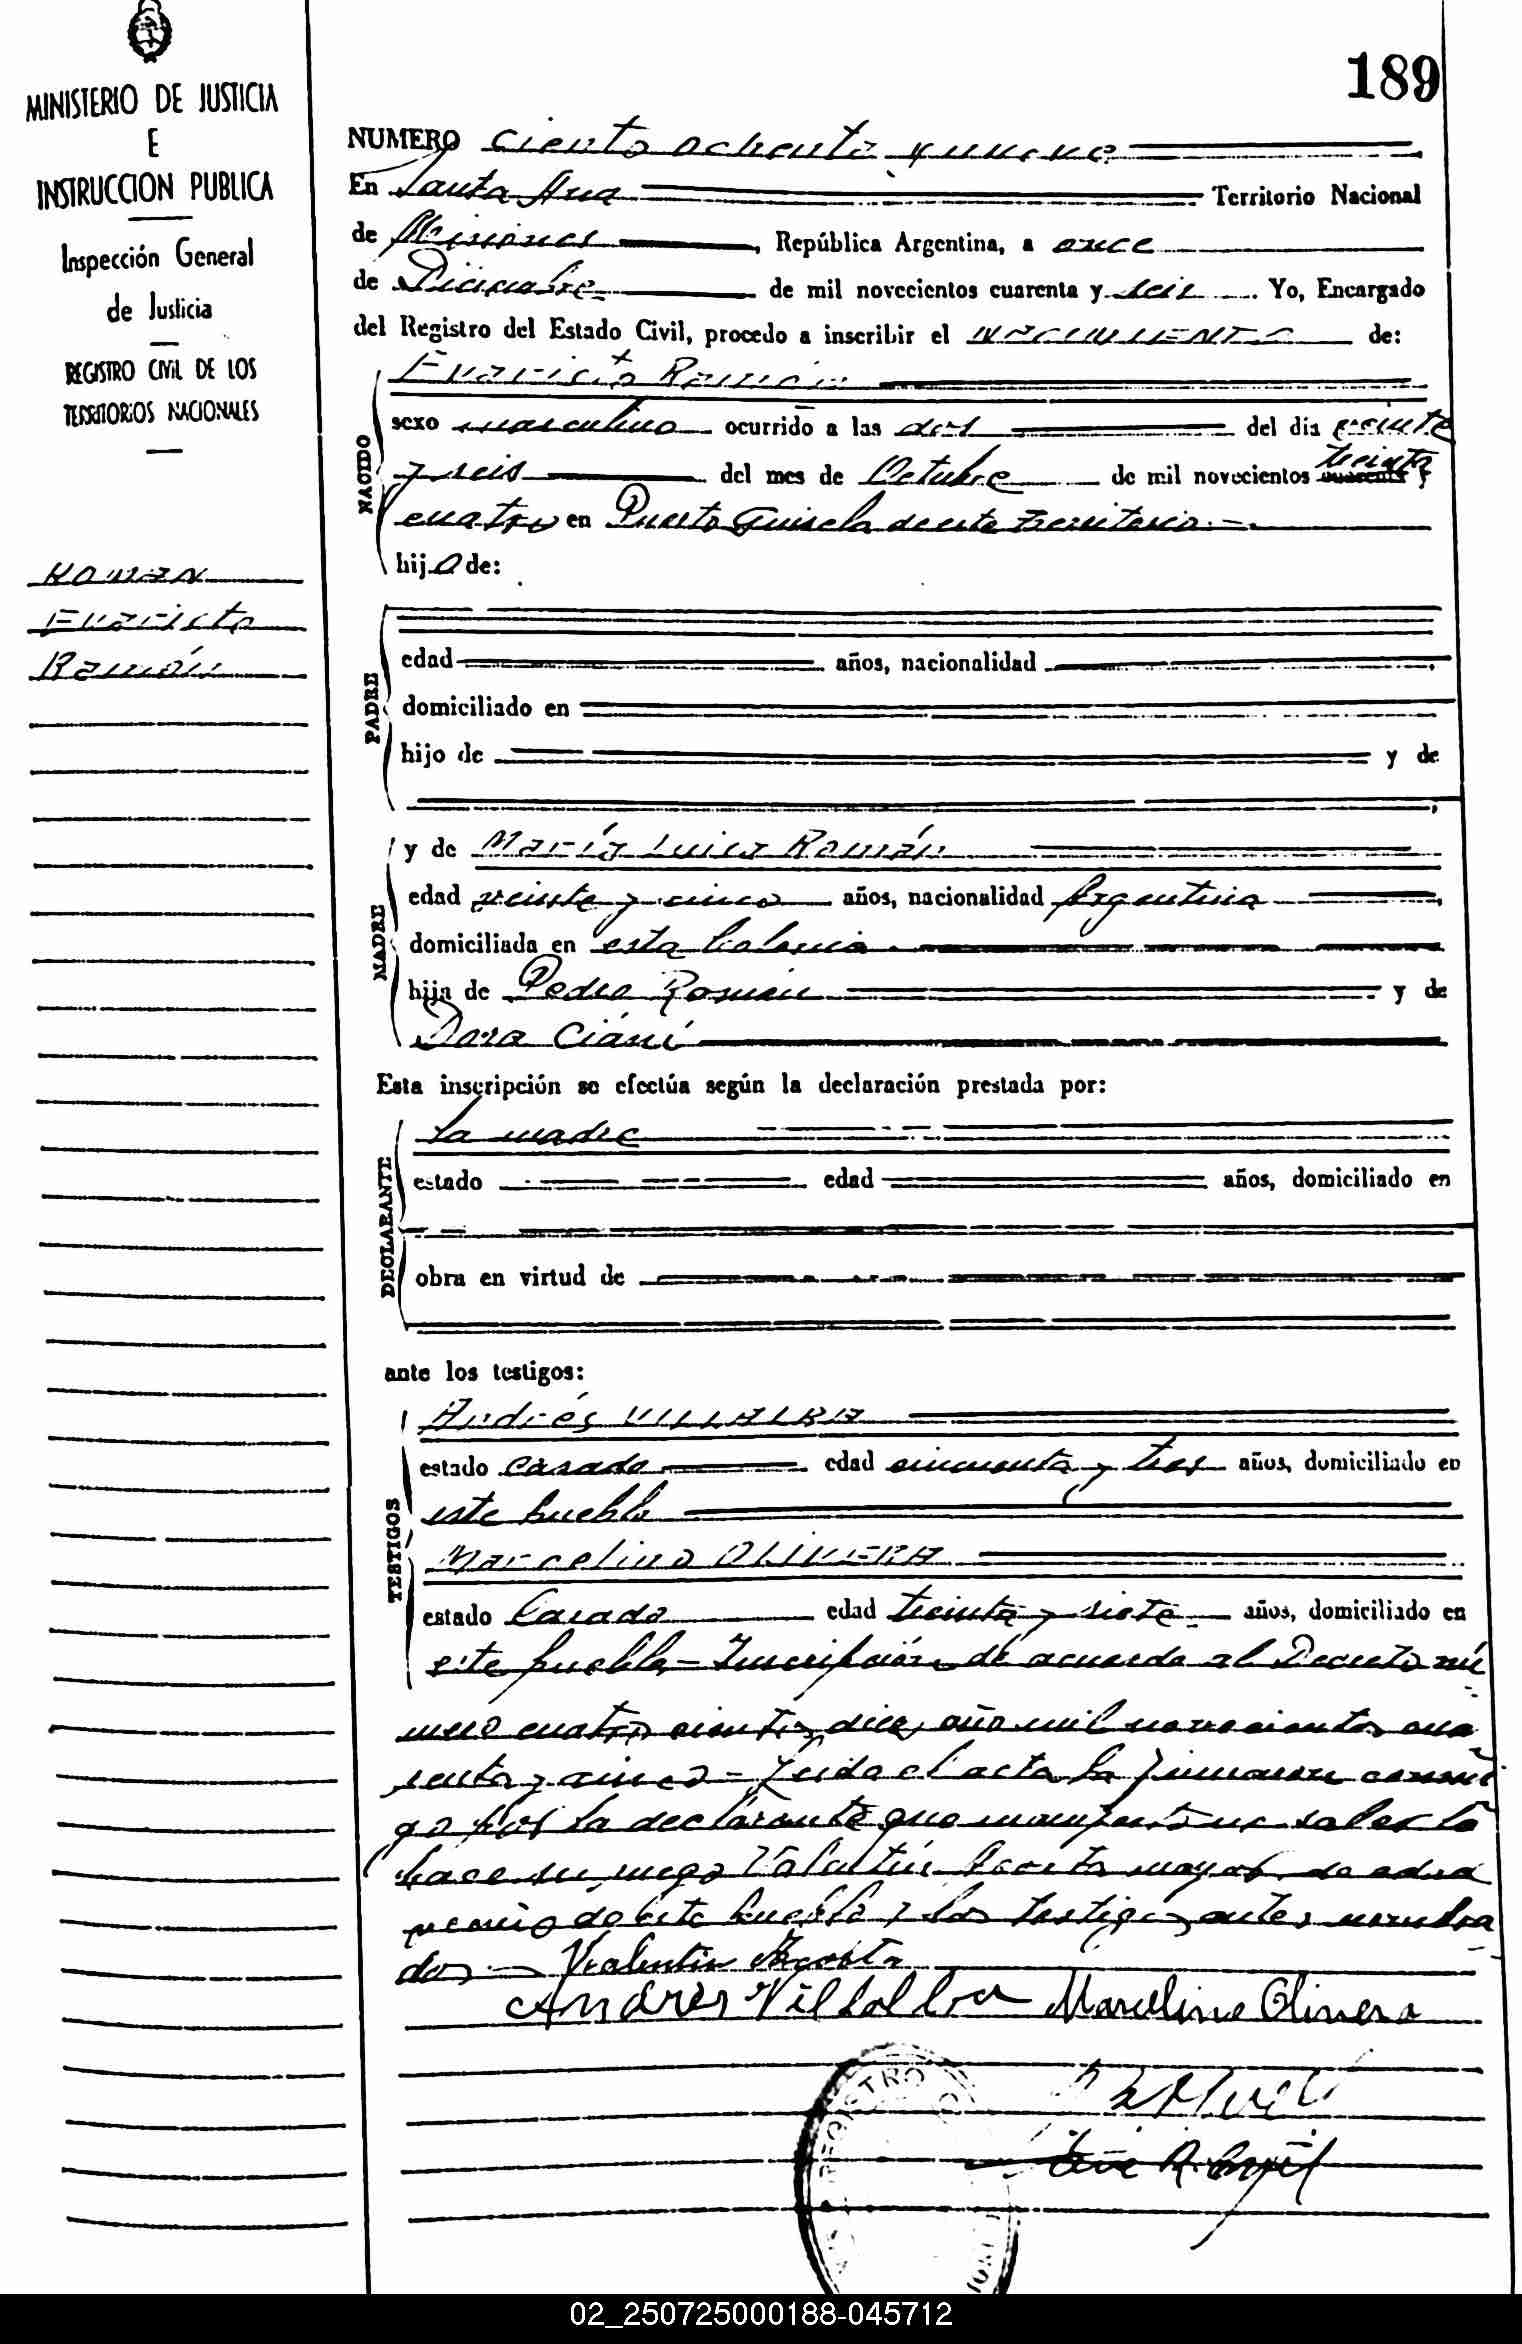 189
MINISTERIO DE JUSTICIA
E
INSTRUCCION PUBLICA
Inspección General
de Justicia
REGISTRO CIVIL DE LOS
TERRITORIOS NACIONALES
ROMAN
Evaristo
Ramón
NUMERO ciento ochenta y nueve
En Santa Ana Territorio Nacional
de Misiones, República Argentina, a once
de Diciembre de mil novecientos cuarenta y seis. Yo, Encargado
del Registro del Estado Civil, procedo a inscribir el NACIMIENTO de:
Evaristo Ramón
NACIDO
sexo masculino ocurrido a las dos del dia veinte
y seis del mes de Octubre de mil novecientos treinta cuarenta y
cuatro en Puerto Guisela de este Territorio.
hijo de:
PADRE
edad años, nacionalidad
domiciliado en
hijo de y de
MADRE
y de María Luisa Román
edad veinte y cinco años, nacionalidad Argentina
domiciliada en esta Colonia.
hija de Pedro Román y de
Dora
Esta inscripción se efectúa según la declaración prestada por:
DECLARANTE
La madre
estado edad años, domiciliado en
obra en virtud de
ante los testigos:
TESTIGOS
Andrés VILLALBA
estado casado edad cincuenta y tres años, domiciliado en
este pueblo
Marcelino OLIVERA
estado Casado edad treinta y siete años, domiciliado en
este pueblo - Inscripción de acuerdo al Decreto nú
mero cuatro cientos diez, año mil novecientos cua
renta y cinco - Leida el acta la firmaron conmi
go por la declarante que manifestó no saber lo
hace su ruego Valentín Acosta mayor de edad
vecino de este pueblo y los testigos antes nombra
dos. Valentin Acosta
Andres Villalba Marcelino Olivera
REGISTRO
02_250725000188-045712